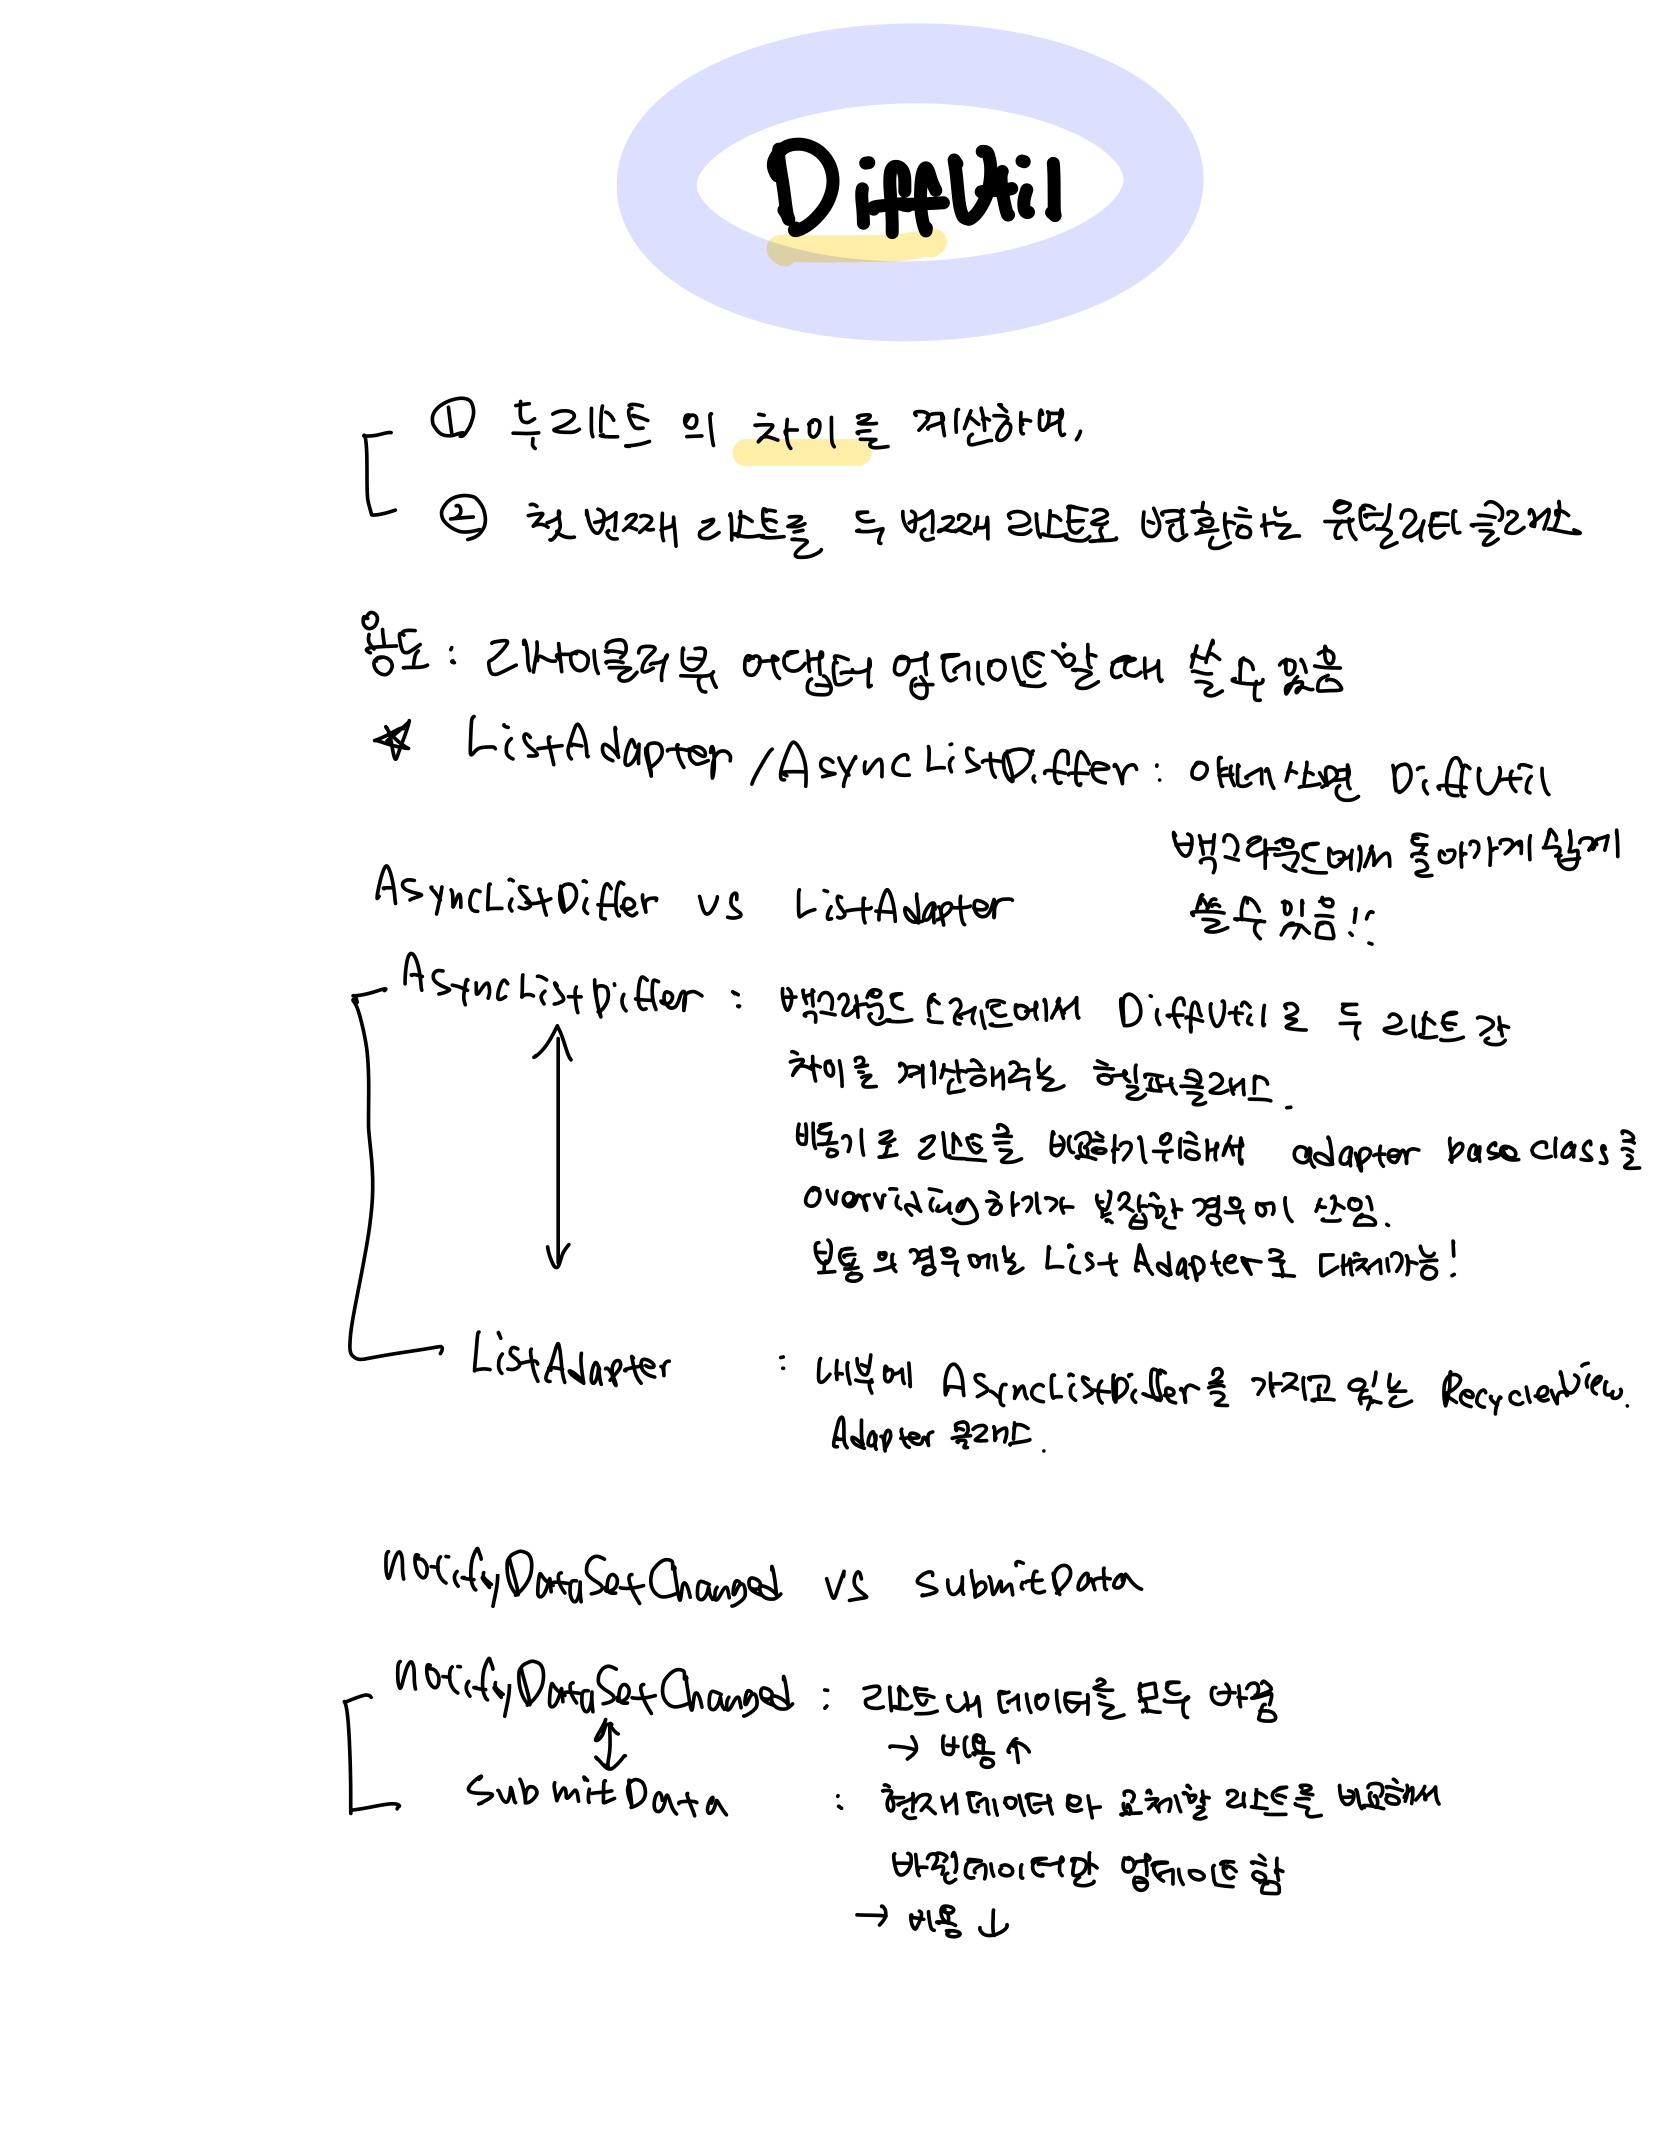 DiffUtil
① 두 리스트의 차이를 계산하며,
② 첫 번째 리스트를 두 번째 리스트로 변환하는 유틸리티 클래스
용도 : 리사이클러뷰 어댑터 업데이트할 때 쓸 수 있음
☆ ListAdapter / AsyncListDiffer : 얘네 쓰면 DiffUtil
백그라운드에서 돌아가게 쉽게
쓸 수 있음!!
AsyncListDiffer vs ListAdapter
AsyncListDiffer : 백그라운드 스레드에서 DiffUtil로 두 리스트 간
차이를 계산해주는 헬퍼클래스.
비동기로 리스트를 비교하기위해서 adapter base class를
overriding하기가 복잡한 경우에 쓰임.
보통의 경우에는 List Adapter로 대체가능!
ListAdapter : 내부에 AsyncListDiffer를 가지고 있는 RecyclerView.
Adapter 클래스.
notifyDataSetChanged vs submitData
notifyDataSetChanged : 리스트 내 데이터를 모두 바꿈
→ 비용 ↑
submitData : 현재 데이터와 교체할 리스트를 비교해서
바뀐 데이터만 업데이트 함
→ 비용 ↓